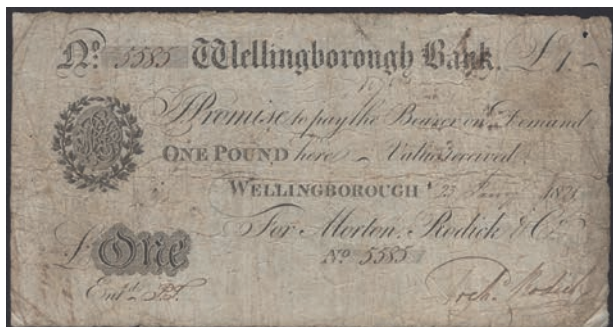 No. 5585 Wellingborough Bank. £1-
I Promise to pay the Bearer on Demand
ONE POUND here - Value received
WELLINGBOROUGH 23
For Morton, Rodick & Co.
£ One
No 5585
Ent.d
Rodick